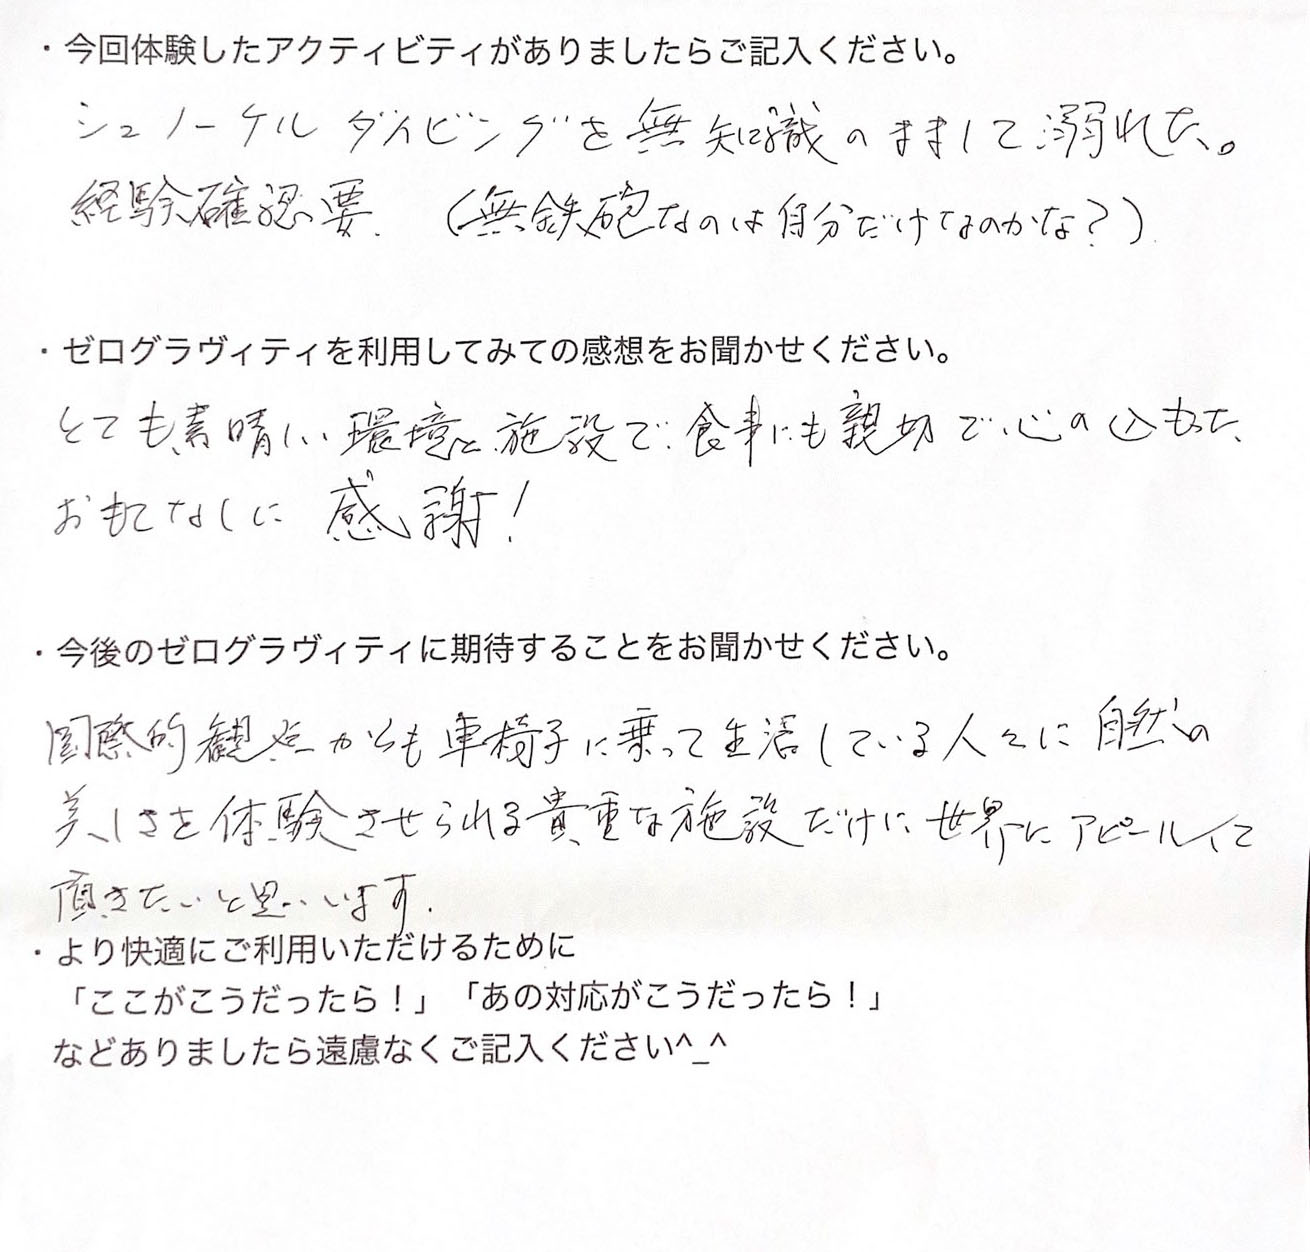 ・今回体験したアクティビティがありましたらご記入ください。
シュノーケルダイビングを無知識のままして溺れた。
経験確認要.（無鉄砲なのは自分だけなのかな？）
・ゼログラヴィティを利用してみての感想をお聞かせください。
とても素晴しい環境と施設で、食事にも親切で、心の込もった、
おもてなしに感謝！
・今後のゼログラヴィティに期待することをお聞かせください。
国際的観点からも車椅子に乗って生活している人々に自然の
美しさを体験させられる貴重な施設だけに世界にアピールして
頂きたいと思います.
・より快適にご利用いただけるために
「ここがこうだったら！」「あの対応がこうだったら！」
などありましたら遠慮なくご記入ください^_^